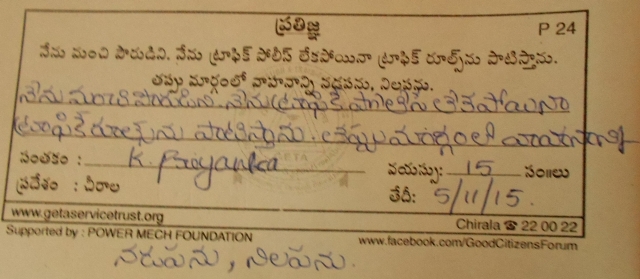 ప్రతిజ్ఞ P 24
నేను మంచి పౌరుడిని. నేను ట్రాఫిక్ పోలీస్ లేకపోయినా ట్రాఫిక్ రూల్స్‌ను పాటిస్తాను.
తప్పు మార్గంలో వాహనాన్ని నడపను, నిలపను.
నేను మంచి పౌరుడిని నేను ట్రాఫిక్ పోలీస్ లేకపోయినా
ట్రాఫిక్ రూల్స్‌ను పాటిస్తాను. తప్పు మార్గంలో వాహనాన్ని
సంతకం : K. Priyanka వయస్సు: 15 సం॥లు
ప్రదేశం : చీరాల తేదీ: 5/11/15.
www.getaservicetrust.org Chirala ☎ 22 00 22
Supported by : POWER MECH FOUNDATION www.facebook.com/GoodCitizensForum
నడుపను, నిలపను.